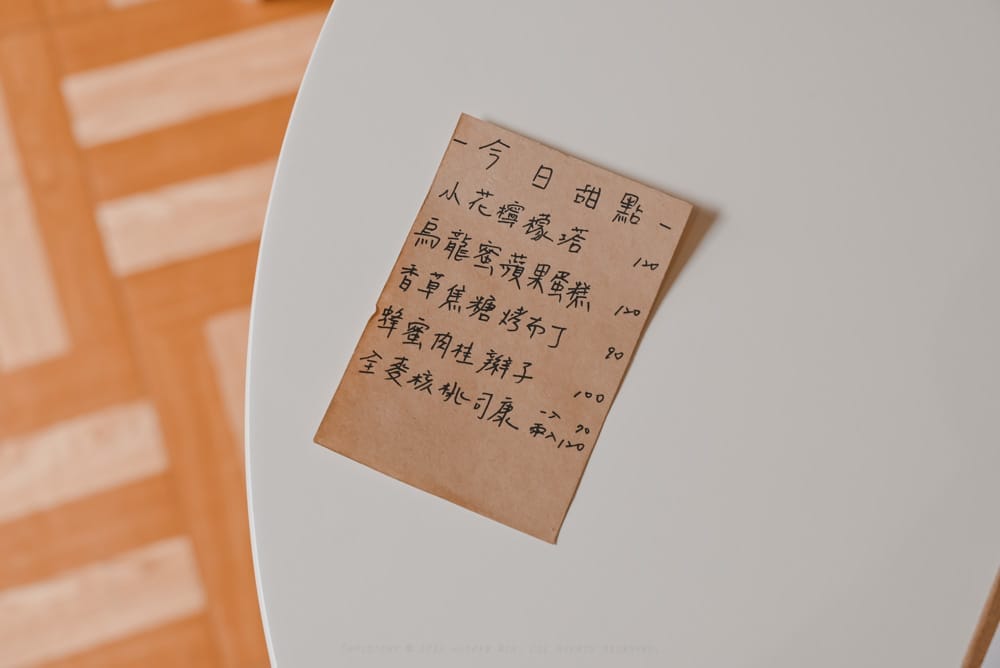 -今日甜點-
小花檸檬塔 120
烏龍蜜蘋果蛋糕 120
香草焦糖烤布丁 90
蜂蜜肉桂辮子 100
全麥核桃司康 一入 70
兩入120